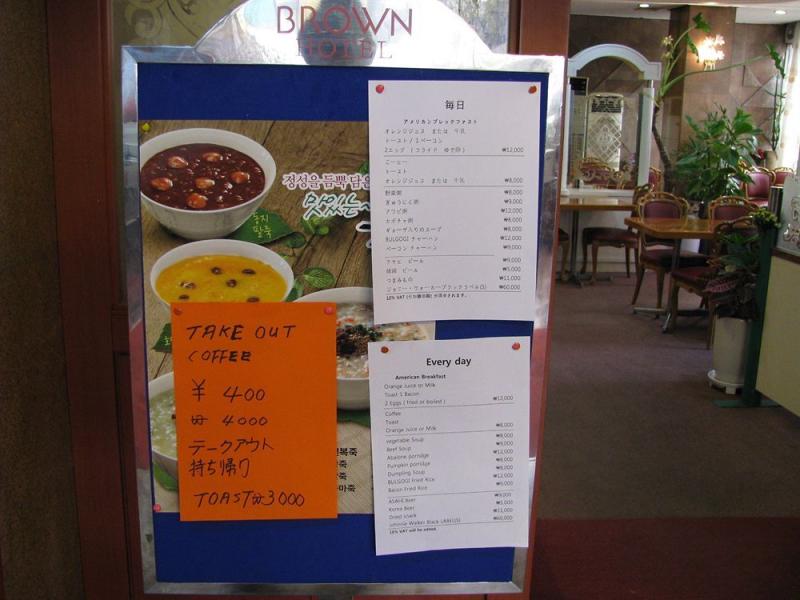 BROWN
HOTEL
정성을 듬뿍 담은
맛있는
동지
팥죽
TAKE OUT
COFFEE
¥ 400
₩ 4000
テークアウト
持ち帰り
TOAST ₩3000
복죽
죽
죽
마죽
毎日
アメリカンブレックファスト
オレンジジュス または 牛乳
トースト/1ベーコン
2エッグ (フライド ゆで卵) ₩12,000
コーヒー
トースト
オレンジジュス または 牛乳 ₩8,000
野菜粥 ₩8,000
ぎゅうにく粥 ₩9,000
アワビ粥 ₩12,000
カボチャ粥 ₩8,000
ギョーザ入りのスープ ₩8,000
BULGOGI チャーハン ₩12,000
ベーコン チャーハン ₩9,000
アサヒ ビール ₩9,000
韓国 ビール ₩5,000
つまみもの ₩11,000
ジョニー・ウォーカーブラックラベル(S) ₩60,000
Every day
American Breakfast
Orange Juice or Milk
Toast 1 Bacon
2 Eggs ( fried or boiled ) ₩12,000
Coffee
Toast
Orange Juice or Milk ₩8,000
vegetable Soup ₩8,000
Beef Soup ₩9,000
Abalone porridge ₩12,000
Pumpkin porridge ₩8,000
Dumpling Soup ₩8,000
BULGOGI Fried Rice ₩12,000
Bacon Fried Rice ₩9,000
ASAHI Beer ₩9,000
Korea Beer ₩5,000
Dried snack ₩11,000
Johnnie Walker Black LABEL(S) ₩60,000
10% VAT will be added.